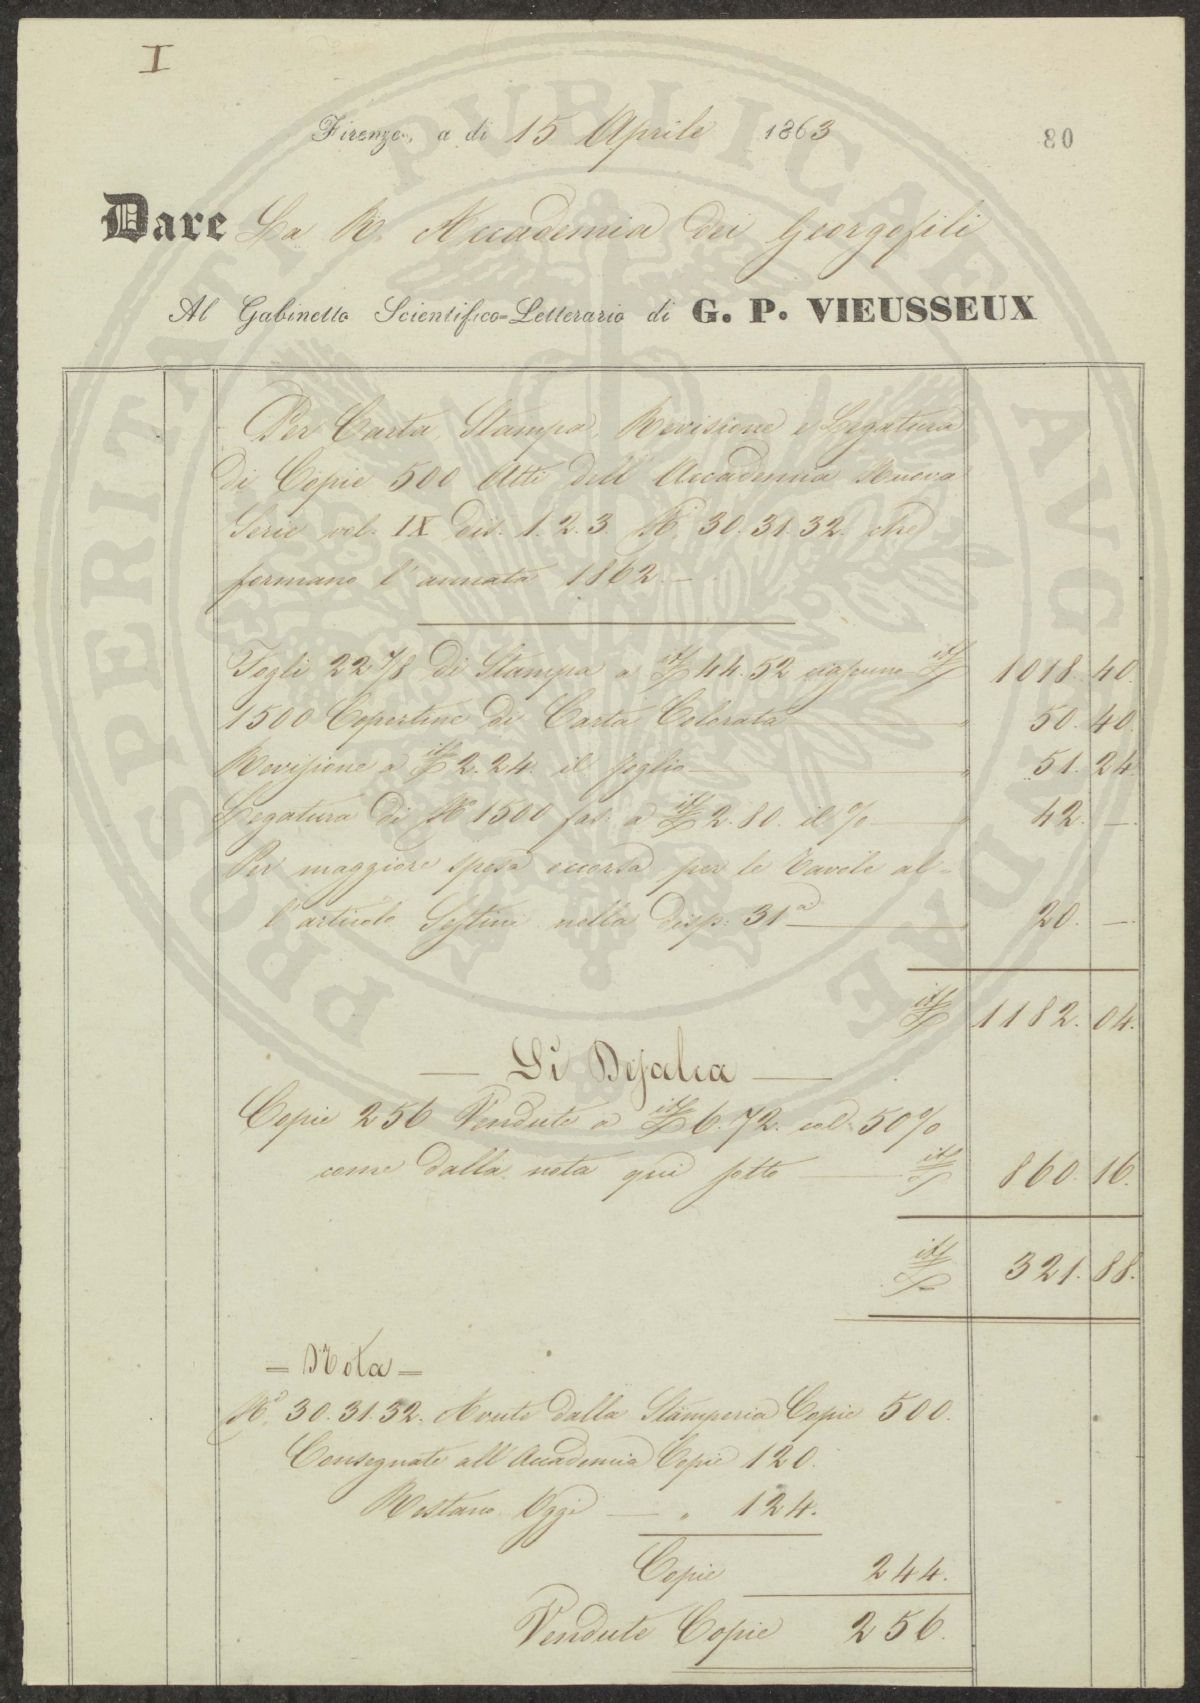 I
Firenze, a di 15 Aprile 1863
80
Dare La R. Accademia dei Georgofili
Al Gabinetto Scientifico-Letterario di G. P. VIEUSSEUX
Per Carta, Stampa, Revisione e Legatura
di Copie 500 Atti dell' Accademia Nuova
Serie vol. IX dis. 1. 2. 3. N.º 30. 31. 32. che
formano l' annata 1862.—
Fogli 22 7/8 di Stampa a itL 44. 52 ciascuno itL 1018. 40.
1500 Copertine di Carta Colorata — " 50. 40
Revisione a itL 2. 24. il foglio — " 51. 24
Legatura di N.º 1500 fas. a itL 2. 80. il % — " 42. —
Per maggiore spesa occorsa per le Tavole al=
l' articolo Sestini nella disp. 31ª — " 20. —
itL 1182. 04.
— Si Defalca —
Copie 256 Vendute a itL 6. 72. col 50%
come dalla nota qui sotto — itL 860. 16.
itL 321. 88.
= Nota =
N.º 30. 31. 32. Avute dalla Stamperia Copie 500.
Consegnate all' Accademia Copie 120.
Restano Oggi — " 124.
Copie 244.
Vendute Copie 256.
PROSPERITATI PUBLICAE AUGENDAE